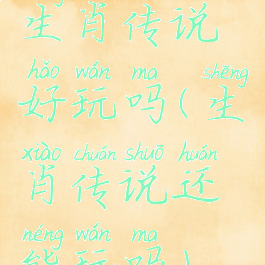 生肖传说
hǎo wán ma shēng
好玩吗(生
xiào chuán shuō huán
肖传说还
néng wán ma
能玩吗)